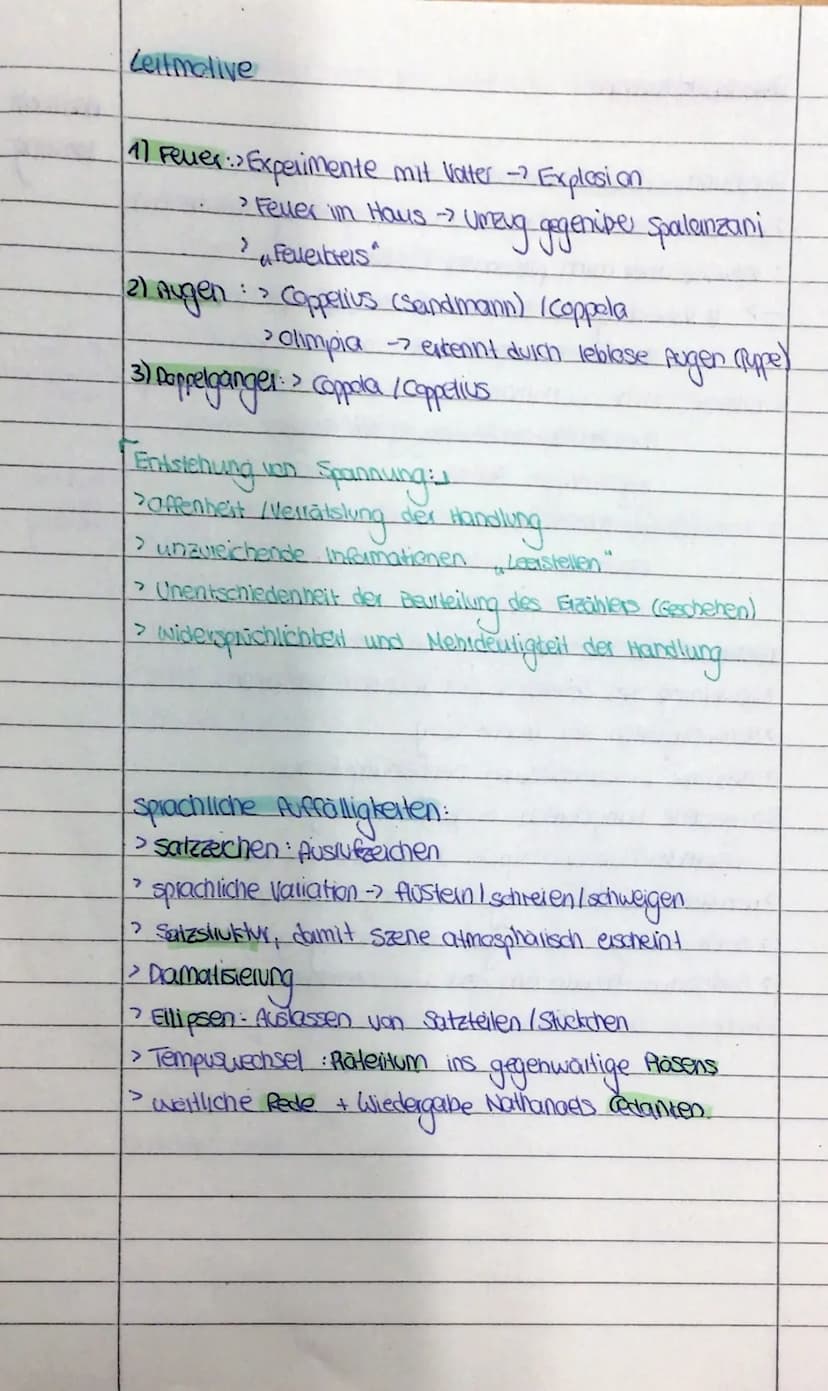 Leitmotive
1) Feuer: > Experimente mit Vater -> Explosion
> Feuer im Haus -> Umzug gegenüber Spalanzani
> „Feuerkreis"
2) Augen : > Coppelius (Sandmann) / Coppola
> Olimpia -> erkennt durch leblose Augen (Puppe)
3) Doppelgänger: > Coppola / Coppelius
Entstehung von Spannung:
> Offenheit / Verrätslung der Handlung
> unzureichende Informationen „Leerstellen"
> Unentschiedenheit der Beurteilung des Erzählers (Geschehen)
> Widersprüchlichkeit und Mehrdeutigkeit der Handlung
Sprachliche Auffälligkeiten:
> Satzzeichen : Ausrufzeichen
> sprachliche Variation -> flüstern / schreien / schweigen
> Satzstruktur, damit Szene atmosphärisch erscheint
> Dramatisierung
> Ellipsen - Auslassen von Satzteilen / Stückchen
> Tempuswechsel : Präteritum ins gegenwärtige Präsens
> wörtliche Rede + Wiedergabe Nathanaels Gedanken